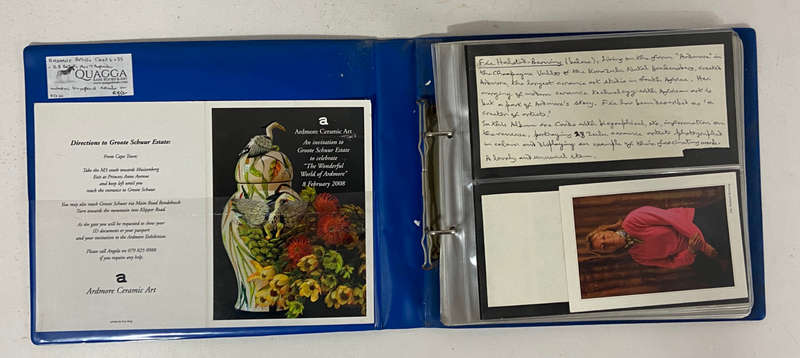 QUAGGA
Directions to Groote Schuur Estate:
From Cape Town:
Take the M3 south towards Muizenberg
Exit at Princess Anne Avenue
and keep left until you
reach the entrance to Groote Schuur
You may also reach Groote Schuur via Main Road Rondebosch
Turn towards the mountain into Klipper Road.
At the gate you will be requested to show your
ID document or your passport
and your invitation to the Ardmore Exhibition
Please call Angela on 079 825 0988
if you require any help.
a
Ardmore Ceramic Art
a
Ardmore Ceramic Art
An invitation to
Groote Schuur Estate
to celebrate
"The Wonderful
World of Ardmore"
8 February 2008
Fée Halsted-Berning (below), living on the farm "Ardmore" in
the Champagne Valley of the KwaZulu Natal Drakensberg, created
Ardmore, the largest ceramic art studio in South Africa. Her
merging of modern ceramic technology with African art is
but a part of Ardmore's story. Fée has been described as "a
creator of artists."
In this Album are cards with biographical, etc, information on
the reverse, portraying 28 Zulu ceramic artists photographed
in colour and displaying an example of their fascinating work.
A lovely and unusual item.